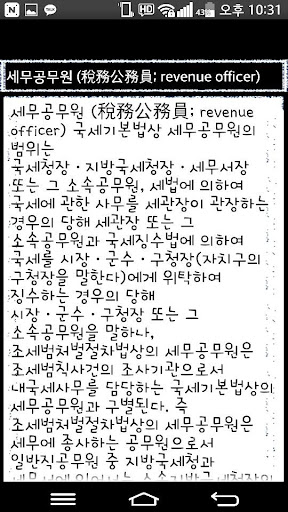 오후 10:31
세무공무원 (稅務公務員; revenue officer)
세무공무원 (稅務公務員; revenue
officer) 국세기본법상 세무공무원의
범위는
국세청장·지방국세청장·세무서장
또는 그 소속공무원, 세법에 의하여
국세에 관한 사무를 세관장이 관장하는
경우의 당해 세관장 또는 그
소속공무원과 국세징수법에 의하여
국세를 시장·군수·구청장(자치구의
구청장을 말한다)에게 위탁하여
징수하는 경우의 당해
시장·군수·구청장 또는 그
소속공무원을 말하나,
조세범처벌절차법상의 세무공무원은
조세범칙사건의 조사기관으로서
내국세사무를 담당하는 국세기본법상의
세무공무원과 구별된다. 즉
조세범처벌절차법상의 세무공무원은
세무에 종사하는 공무원으로서
일반직공무원 중 지방국세청과